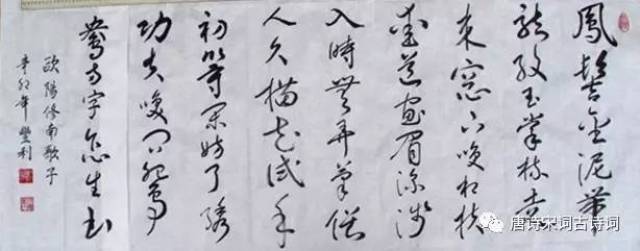 鳳髻金泥帶
龍紋玉掌梳走
來窗下笑相扶
愛道畫眉深淺
入時無弄筆偎
人久描花試手
初等閑妨了繡
功夫笑問鴛
鴦兩字怎生書
歐陽修南歌子
辛卯年豐利
唐诗宋词古诗词